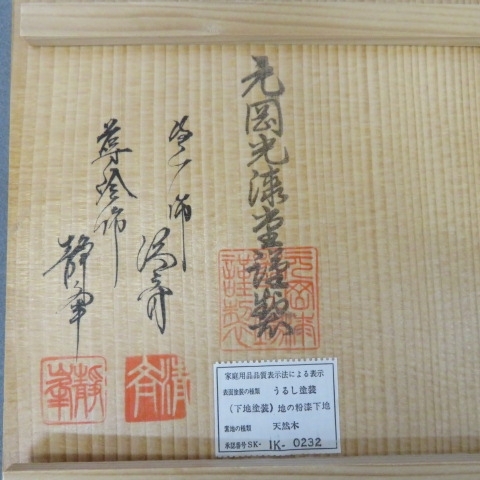 元岡光漆堂謹製
塗師
清斉
蒔絵師
静峯
清斉
静峯
家庭用品品質表示法による表示
表面塗装の種類 うるし塗装
(下地塗装) 地の粉漆下地
素地の種類 天然木
承認番号 SK- 1K- 0232